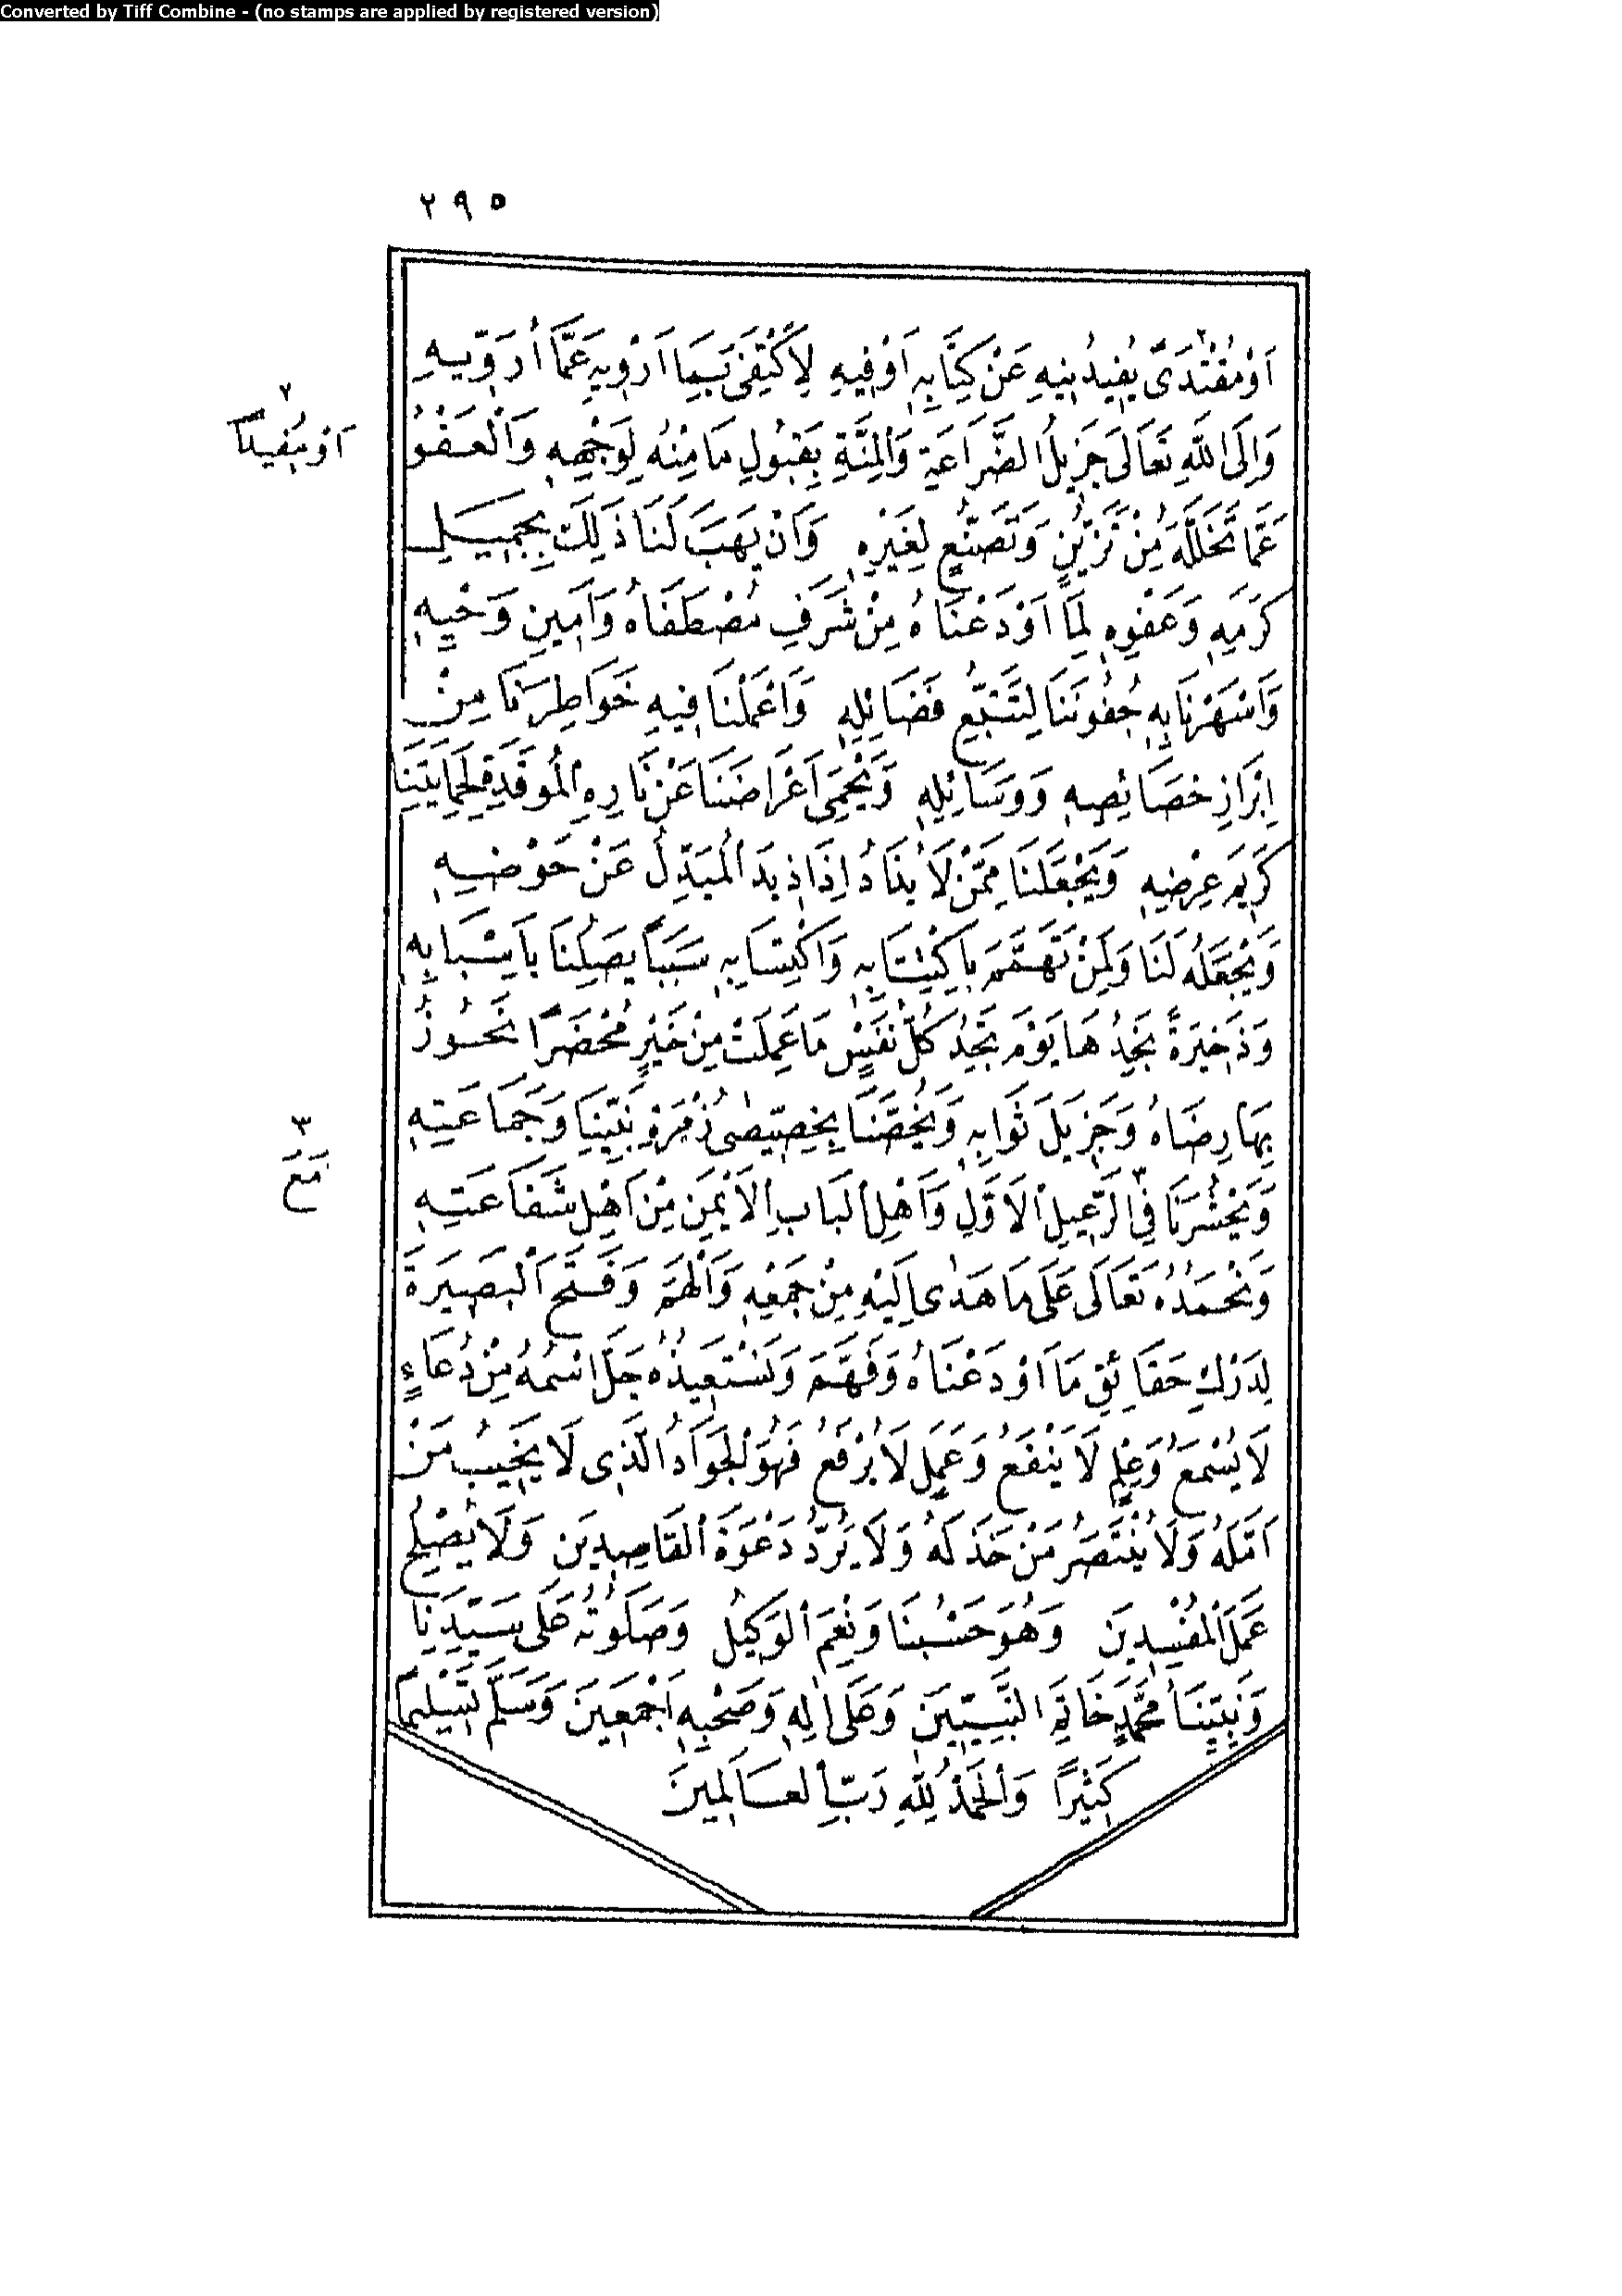 Converted by Tiff Combine - (no stamps are applied by registered version)
٢٩٥
اَوْ مُقْتَدًى يُفِيدُنِيهِ عَنْ كِتَابِهِ اَوْ فِيهِ لِاَكْتَفِىَ بِمَا اَرْوِيهِ عَمَّا اُرَوِّيهِ
٢
اَوْ مُفِيدًا
وَاِلَى اللهِ تَعَالَى جَزِيلُ الضَّرَاعَةِ وَالْمِنَّةِ بِقَبُولِ مَا مِنْهُ لِوَجْهِهِ وَالْعَفْوُ
عَمَّا تَخَلَّلَهُ مِنْ تَزَيُّنٍ وَتَصَنُّعٍ لِغَيْرِهِ وَاَنْ يَهَبَ لَنَا ذَلِكَ بِجَمِيلِ
كَرَمِهِ وَعَفْوِهِ لِمَا اَوْدَعْنَاهُ مِنْ شَرَفِ مُصْطَفَاهُ وَاَمِينِ وَحْيِهِ
وَاَسْهَرْنَا بِهِ جُفُونَنَا لِتَتَبُّعِ فَضَائِلِهِ وَاَعْمَلْنَا فِيهِ خَوَاطِرَنَا مِنْ
اِبْرَازِ خَصَائِصِهِ وَوَسَائِلِهِ وَيَحْمِىَ اَعْرَاضَنَا عَنْ نَارِهِ الْمُوقَدَةِ لِحِمَايَتِنَا
كَرِيمَ عِرْضِهِ وَيَجْعَلَنَا مِمَّنْ لَا يُذَادُ اِذَا ذِيدَ الْمُبَدِّلُ عَنْ حَوْضِهِ
وَيَجْعَلَهُ لَنَا وَلِمَنْ تَهَمَّمَ بِاكْتِتَابِهِ وَاكْتِسَابِهِ سَبَبًا يَصِلُنَا بِاَسْبَابِهِ
وَذَخِيرَةً نَجِدُهَا يَوْمَ تَجِدُ كُلُّ نَفْسٍ مَا عَمِلَتْ مِنْ خَيْرٍ مُحْضَرًا نَحُوزُ
بِهَا رِضَاهُ وَجَزِيلَ ثَوَابِهِ وَيَخُصَّنَا بِخِصِّيصَى زُمْرَةِ نَبِيِّنَا وَجَمَاعَتِهِ
٣
مَعَ
وَيَحْشُرَنَا فِى الرَّعِيلِ الْاَوَّلِ وَاَهْلِ الْبَابِ الْاَيْمَنِ مِنْ اَهْلِ شَفَاعَتِهِ
وَنَحْمَدُهُ تَعَالَى عَلَى مَا هَدَى اِلَيْهِ مِنْ جَمْعِهِ وَاَلْهَمَ وَفَتَحَ الْبَصِيرَةَ
لِدَرْكِ حَقَائِقِ مَا اَوْدَعْنَاهُ وَفَهَّمَ وَنَسْتَعِيذُهُ جَلَّ اسْمُهُ مِنْ دُعَاءٍ
لَا يُسْمَعُ وَعِلْمٍ لَا يَنْفَعُ وَعَمَلٍ لَا يُرْفَعُ فَهُوَ الْجَوَادُ الَّذِى لَا يَخِيبُ مَنْ
اَمَّلَهُ وَلَا يَنْتَصِرُ مَنْ خَذَلَهُ وَلَا يَرُدُّ دَعْوَةَ الْقَاصِدِينَ وَلَا يُصْلِحُ
عَمَلَ الْمُفْسِدِينَ وَهُوَ حَسْبُنَا وَنِعْمَ الْوَكِيلُ وَصَلَوتُهُ عَلَى سَيِّدِنَا
وَنَبِيِّنَا مُحَمَّدٍ خَاتِمِ النَّبِيِّينَ وَعَلَى اٰلِهِ وَصَحْبِهِ اَجْمَعِينَ وَسَلَّمَ تَسْلِيمًا
كَثِيرًا وَالْحَمْدُ لِلّٰهِ رَبِّ الْعَالَمِينَ